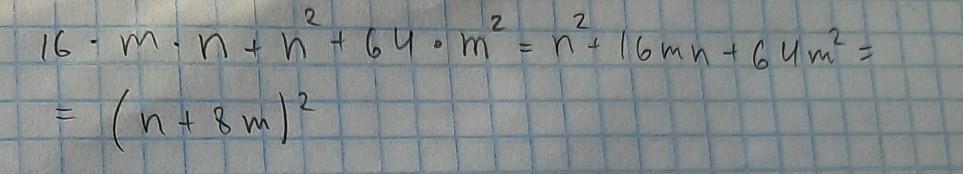 16 · m · n + n² + 64 · m² = n² + 16mn + 64m² =
= (n + 8m)²